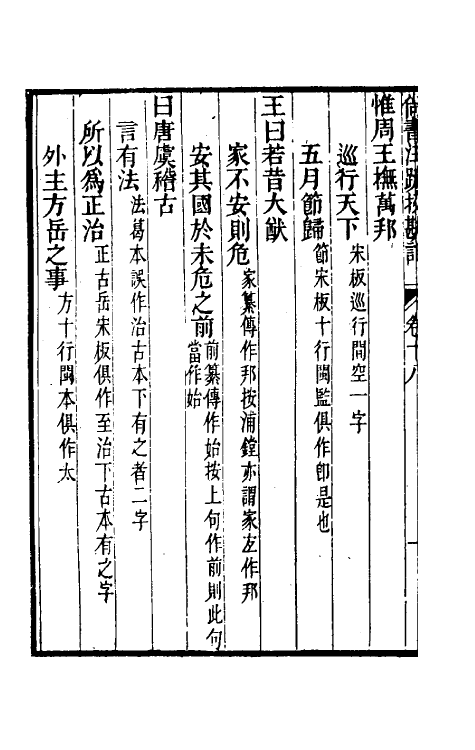 尚書注疏校勘記 卷十八 一
惟周王撫萬邦
巡行天下 宋板巡行間空一字
五月節歸 節宋板十行閩監俱作卽是也
王曰若昔大猷
家不安則危 家纂傳作邦按浦鏜亦謂家左作邦
安其國於未危之前 前纂傳作始按上句作前則此句當作始
曰唐虞稽古
言有法 法葛本誤作治古本下有之者二字
所以爲正治 正古岳宋板俱作至治下古本有之字
外主方岳之事 方十行閩本俱作太